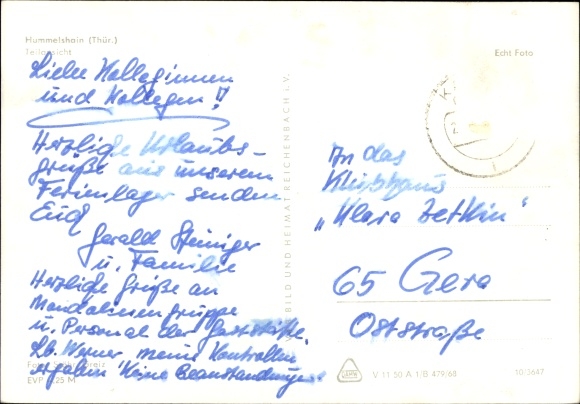 Hummelshain (Thür.)
Teilansicht
Echt Foto
Liebe Kolleginnen
und Kollegen!
Herzliche Urlaubs-
grüße aus unserem
Ferienlager senden
Euch
Gerald Steiniger
u. Familie
Herzliche Grüße an
Mandolinengruppe
u. Personal der Gaststätte.
Lb. Werner, meine Kontrollen
ergaben "Keine Beanstandungen"
EVP 0,25 M
BILD UND HEIMAT REICHENBACH i. V.
An das
Klubhaus
„Klara Zetkin"
65 Gera
Oststraße
V 11 50 A 1/B 479/68
10/3647